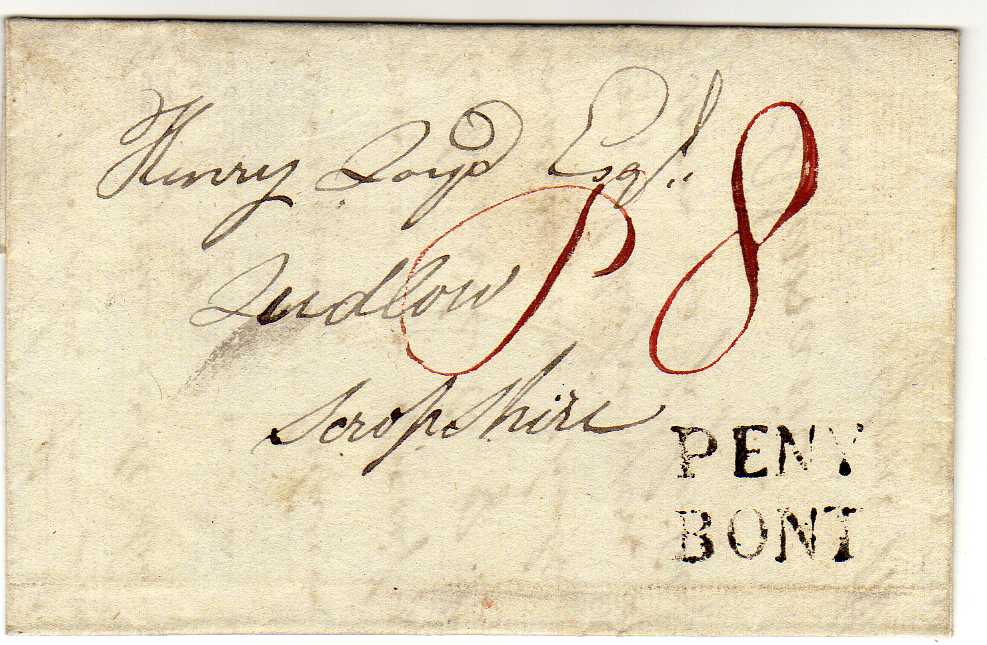 Henry Loyd Esqr.
P 8
Ludlow
Scropshire
PENY
BONT